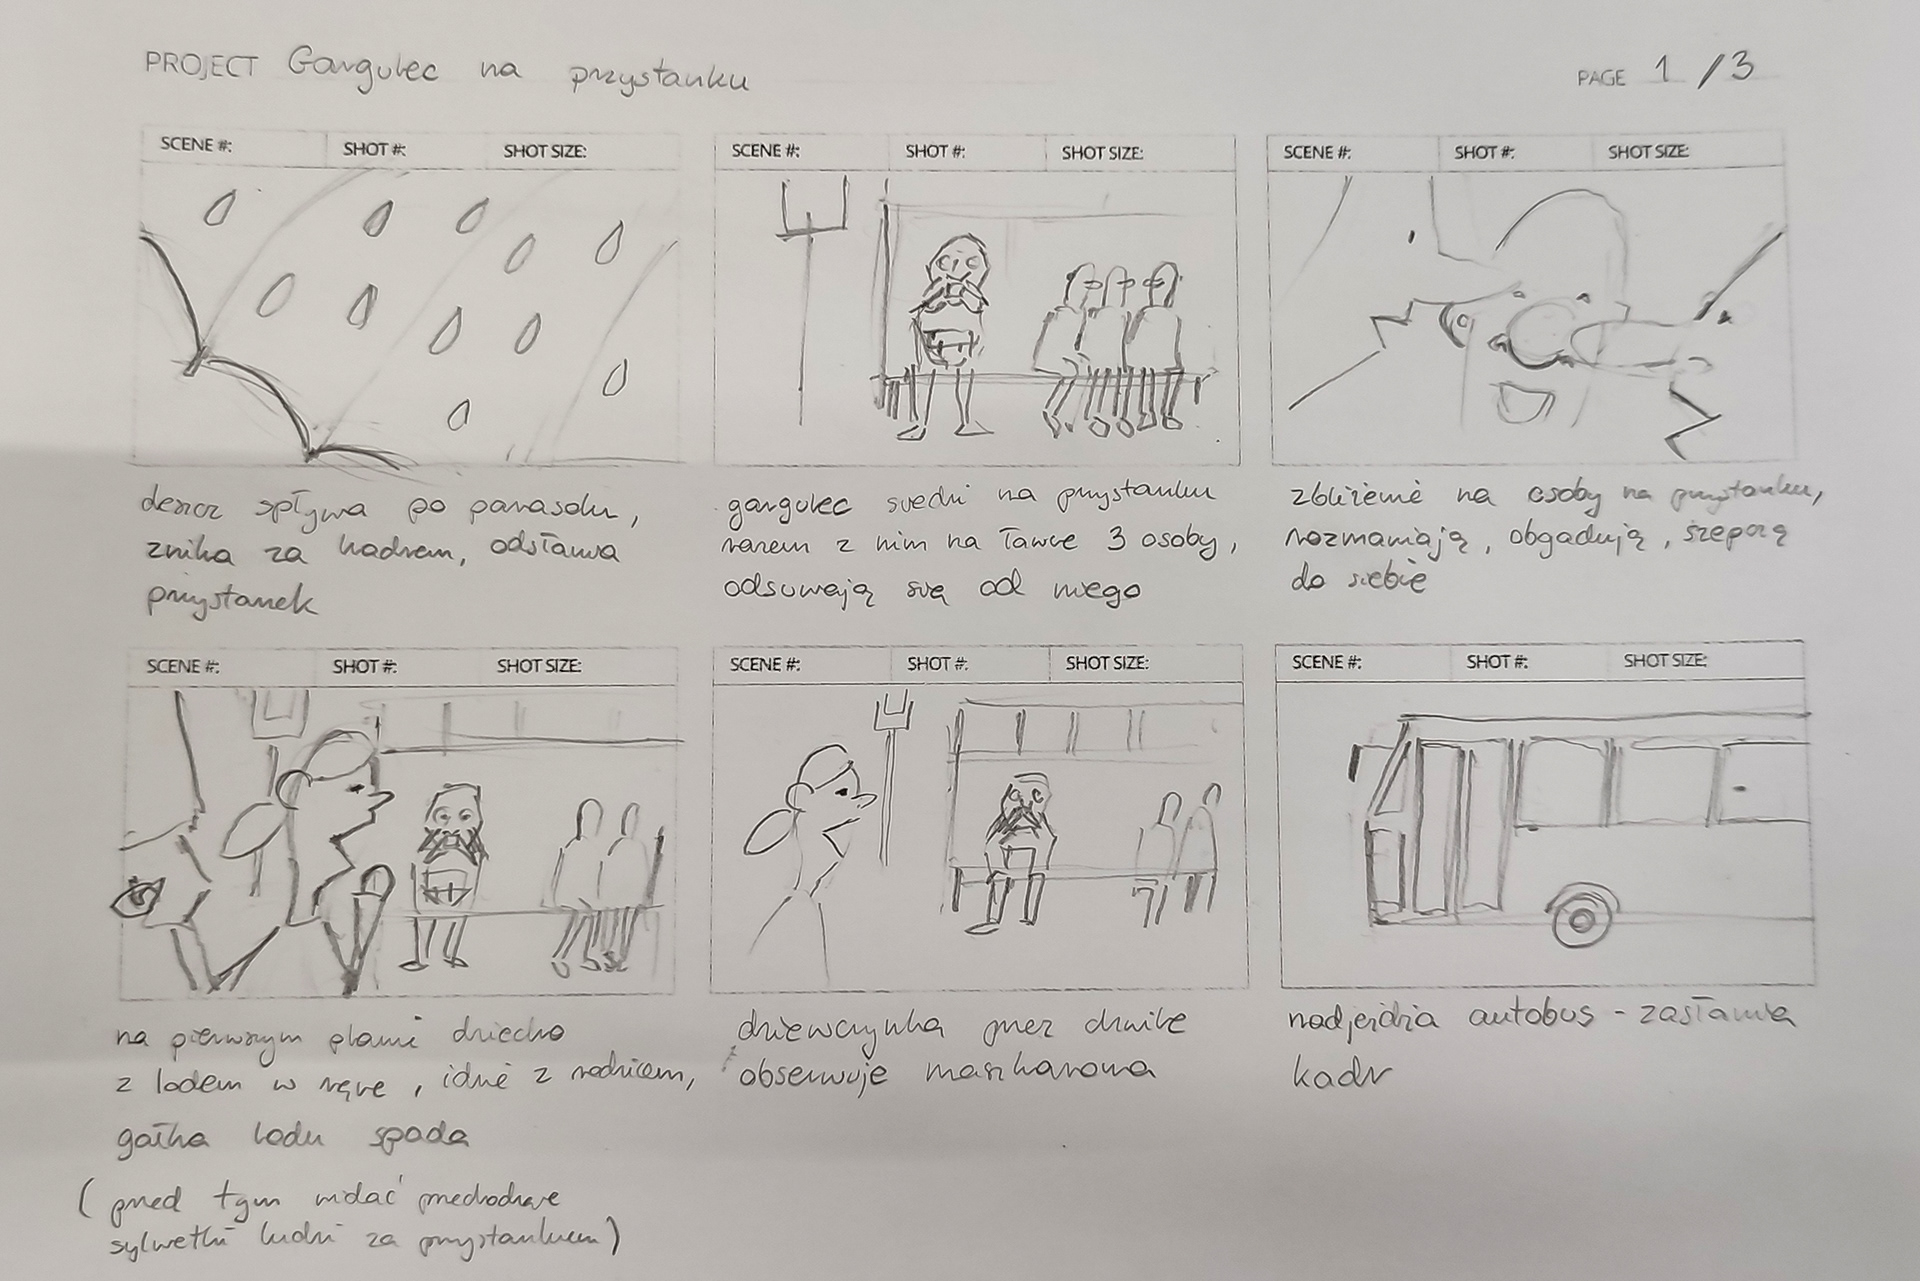 PROJECT Gargulec na przystanku
PAGE 1 / 3
SCENE #: SHOT #: SHOT SIZE:
deszcz spływa po parasolu,
znika za kadrem, odsłania
przystanek
SCENE #: SHOT #: SHOT SIZE:
gargulec siedzi na przystanku
razem z nim na ławce 3 osoby,
odsuwają się od niego
SCENE #: SHOT #: SHOT SIZE:
zbliżenie na osoby na przystanku,
rozmawiają, obgadują, szepczą
do siebie
SCENE #: SHOT #: SHOT SIZE:
na pierwszym planie dziecko
z lodem w ręce, idzie z rodzicem,
gałka lodu spada
(przed tym widać przechodzące
sylwetki ludzi za przystankiem)
SCENE #: SHOT #: SHOT SIZE:
dziewczynka przez chwilę
obserwuje maszkarona
SCENE #: SHOT #: SHOT SIZE:
nadjeżdża autobus - zasłania
kadr